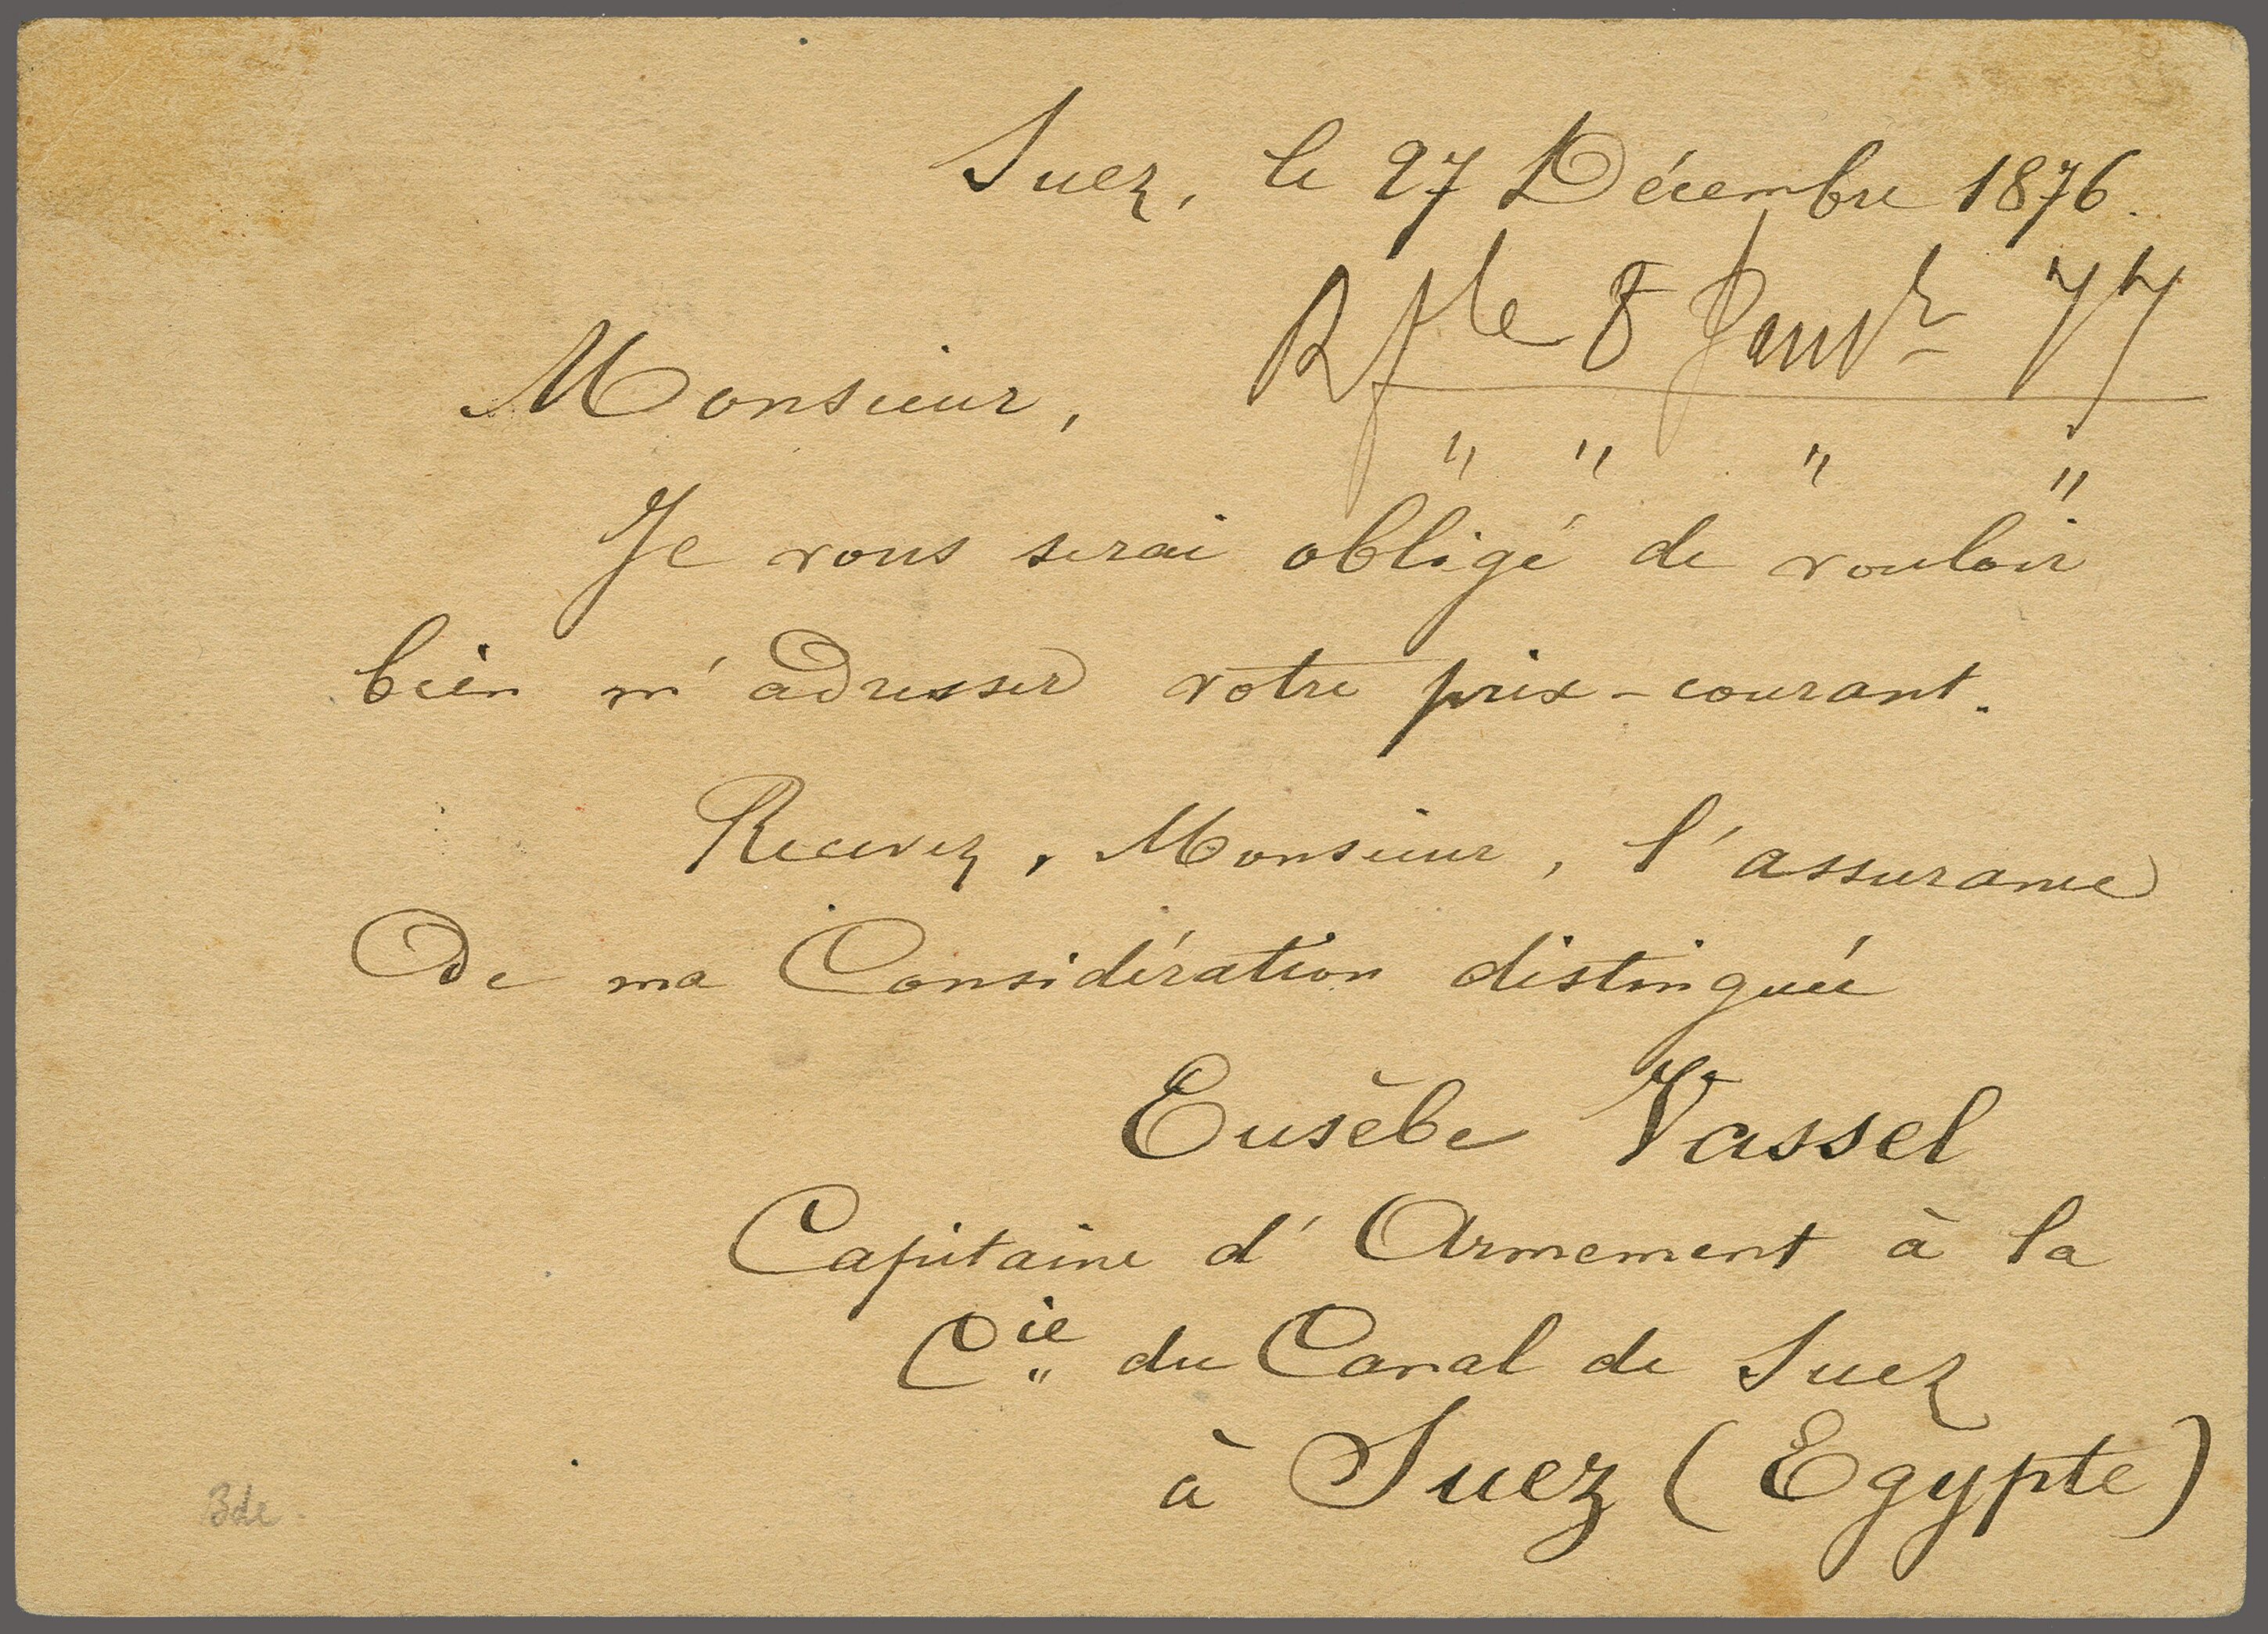 Suez, le 27 Décembre 1876.
le 8 Janvr 77
Monsieur,
" " " "
Je vous serai obligé de vouloir
bien m'adresser votre prix-courant.
Recevez, Monsieur, l'assurance
De ma Considération distinguée
Eusèbe Vassel
Capitaine d'Armement à la
Cie du Canal de Suez
à Suez (Egypte)